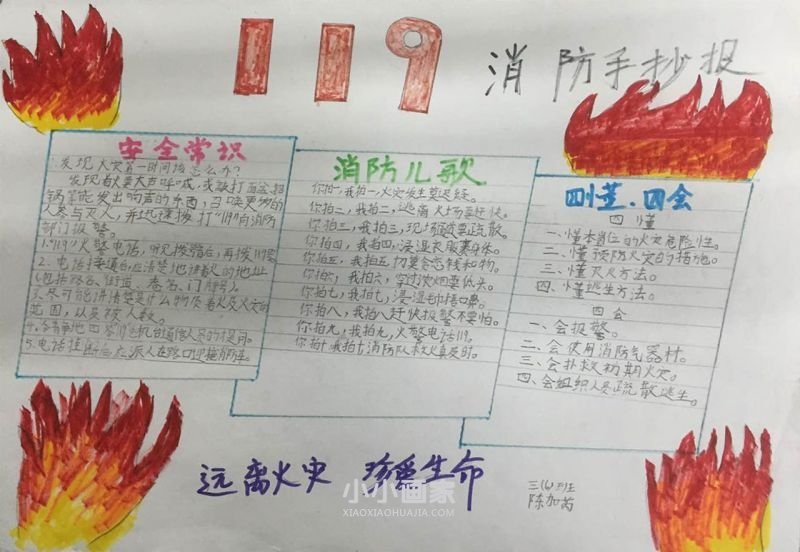 119
消防手抄报
安全常识
发现火灾第一时间该怎么办?
发现着火要大声呼喊,或敲打面盆、
锅等能发出响声的东西,召唤更多的
人参与灭火,并迅速拨打"119"向消防
部门报警。
1."119"火警电话,听见拨号后,再拨119号
2、电话接通后,应清楚地讲着火的地址
(包括路名、街道、巷名、门牌号)。
3、尽可能讲清楚是什么物质着火及火灾的
范围,以及被人数。
5、电话挂断后,应派人在路口迎接消防车。
消防儿歌
你拍一,我拍一,火灾发生莫迟疑。
你拍二,我拍二,逃离火场要赶快。
你拍三,我拍三,现场疏散要疏散。
你拍四,我拍四,浸湿衣服裹身体。
你拍五,我拍五,切莫贪恋钱和物。
你拍六,我拍六,穿过浓烟要低头。
你拍七,我拍七,浸湿毛巾捂口鼻。
你拍八,我拍八,赶快报警不要怕。
你拍九,我拍九,火警电话119。
你拍十,我拍十,消防队救火真及时。
四懂.四会
四懂
一、懂本岗位的火灾危险性。
二、懂预防火灾的措施。
三、懂灭火方法。
四、懂逃生方法。
四会
一、会报警。
二、会使用消防气器材。
三、会扑救初期火灾。
四、会组织人员疏散逃生。
远离火灾 珍惜生命
三(6)班
陈加芮
小小画家
XIAOXIAOHUAJIA.COM